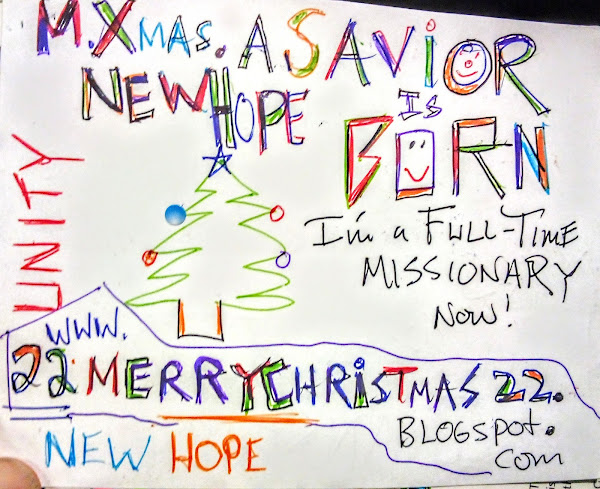 M.XMAS. A SAVIOR
NEW HOPE
IS
BORN
UNITY
I'm a FULL-TIME
MISSIONARY
NOW!
WWW.
22MERRYCHRISTMAS22.
BLOGSPOT.
COM
NEW HOPE